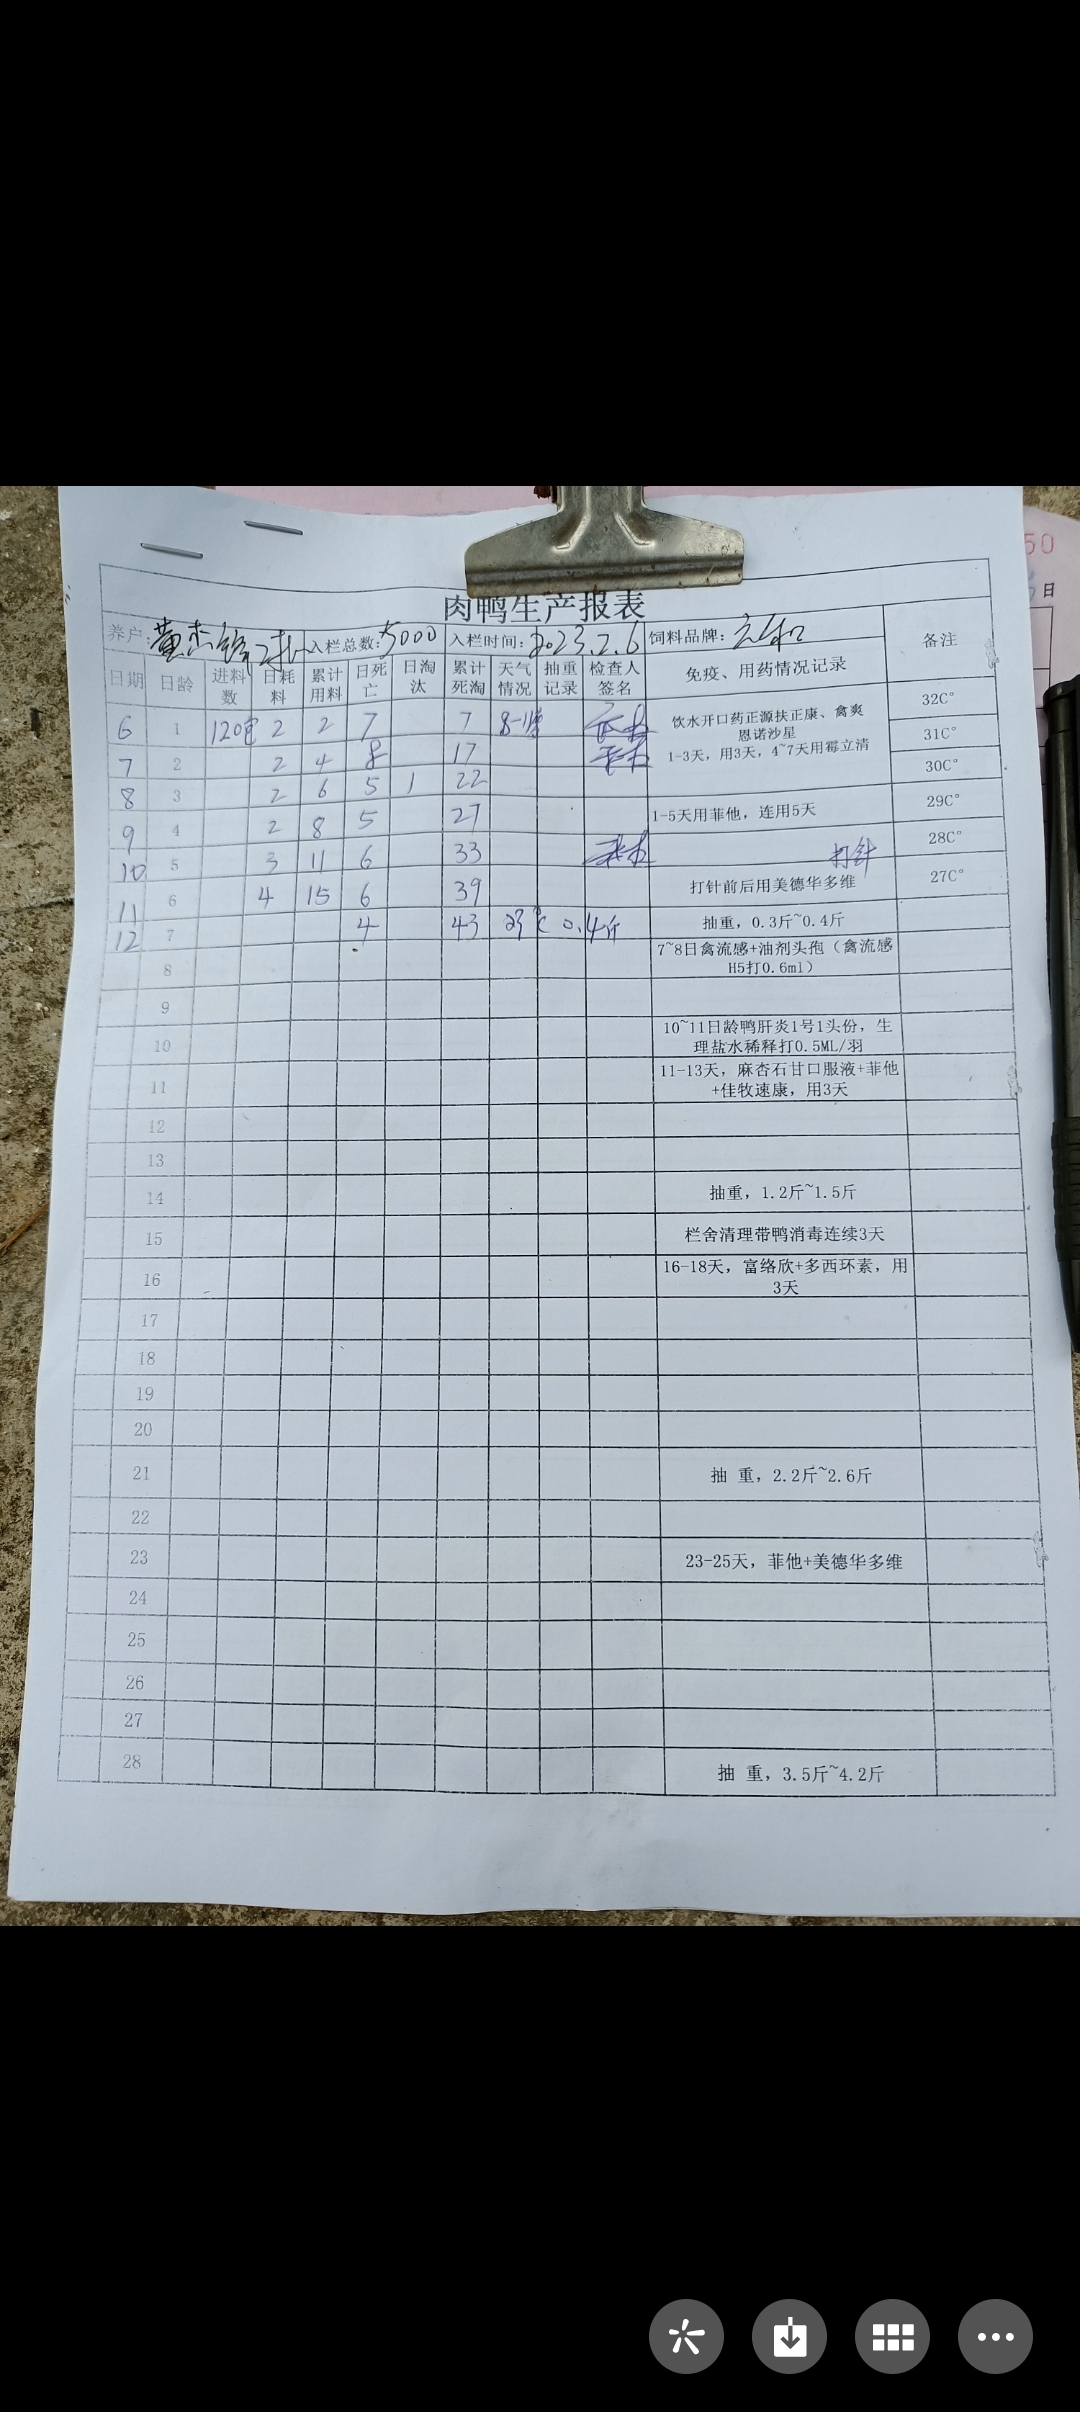 50
日
肉鸭生产报表
养户: 黄 入栏总数: 5000 入栏时间: 2023.2.6 饲料品牌: 备注
日期 日龄 进料数 日耗料 累计用料 日死亡 日淘汰 累计死淘 天气情况 抽重记录 检查人签名 免疫、用药情况记录
6 1 120包 2 2 7 7 32C°
饮水开口药正源扶正康、禽爽
恩诺沙星
1-3天，用3天，4~7天用霉立清
7 2 2 4 8 17 31C°
8 3 2 6 5 1 22 30C°
9 4 2 8 5 27 1-5天用菲他，连用5天 29C°
10 5 3 11 6 33 打针 28C°
11 6 4 15 6 39 打针前后用美德华多维 27C°
12 7 4 43 23℃ 0.4斤 抽重，0.3斤~0.4斤
8 7~8日禽流感+油剂头孢（禽流感
H5打0.6ml）
9
10 10~11日龄鸭肝炎1号1头份，生
理盐水稀释打0.5ML/羽
11 11-13天，麻杏石甘口服液+菲他
+佳牧速康，用3天
12
13
14 抽重，1.2斤~1.5斤
15 栏舍清理带鸭消毒连续3天
16 16-18天，富络欣+多西环素，用
3天
17
18
19
20
21 抽 重，2.2斤~2.6斤
22
23 23-25天，菲他+美德华多维
24
25
26
27
28 抽 重，3.5斤~4.2斤